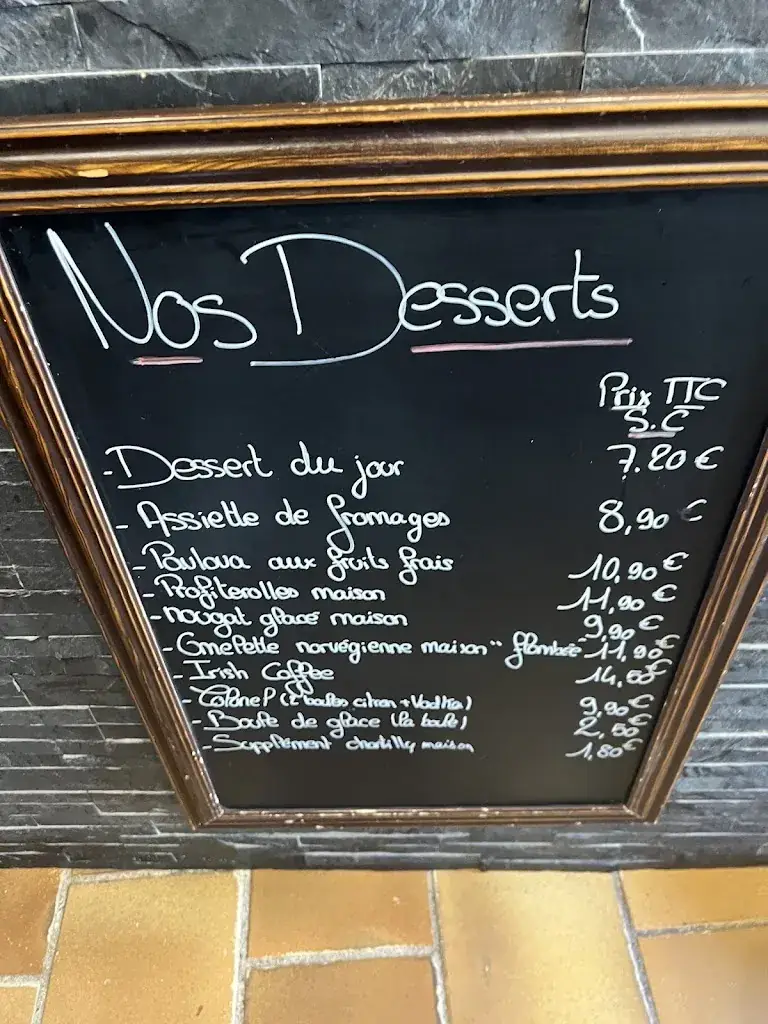 Nos Desserts
Prix TTC
S.C
- Dessert du jour 7.20 €
- Assiette de fromages 8,90 €
- Pavlova aux fruits frais 10,90 €
- Profiterolles maison 11,90 €
- Nougat glacé maison 9,90 €
- Omelette norvégienne maison "flambée" 11,90 €
- Irish Coffee 14,60 €
- Colonel (2 boules citron + Vodka) 9,90 €
- Boule de glace (la boule) 2,50 €
- Supplément chantilly maison 1,80 €